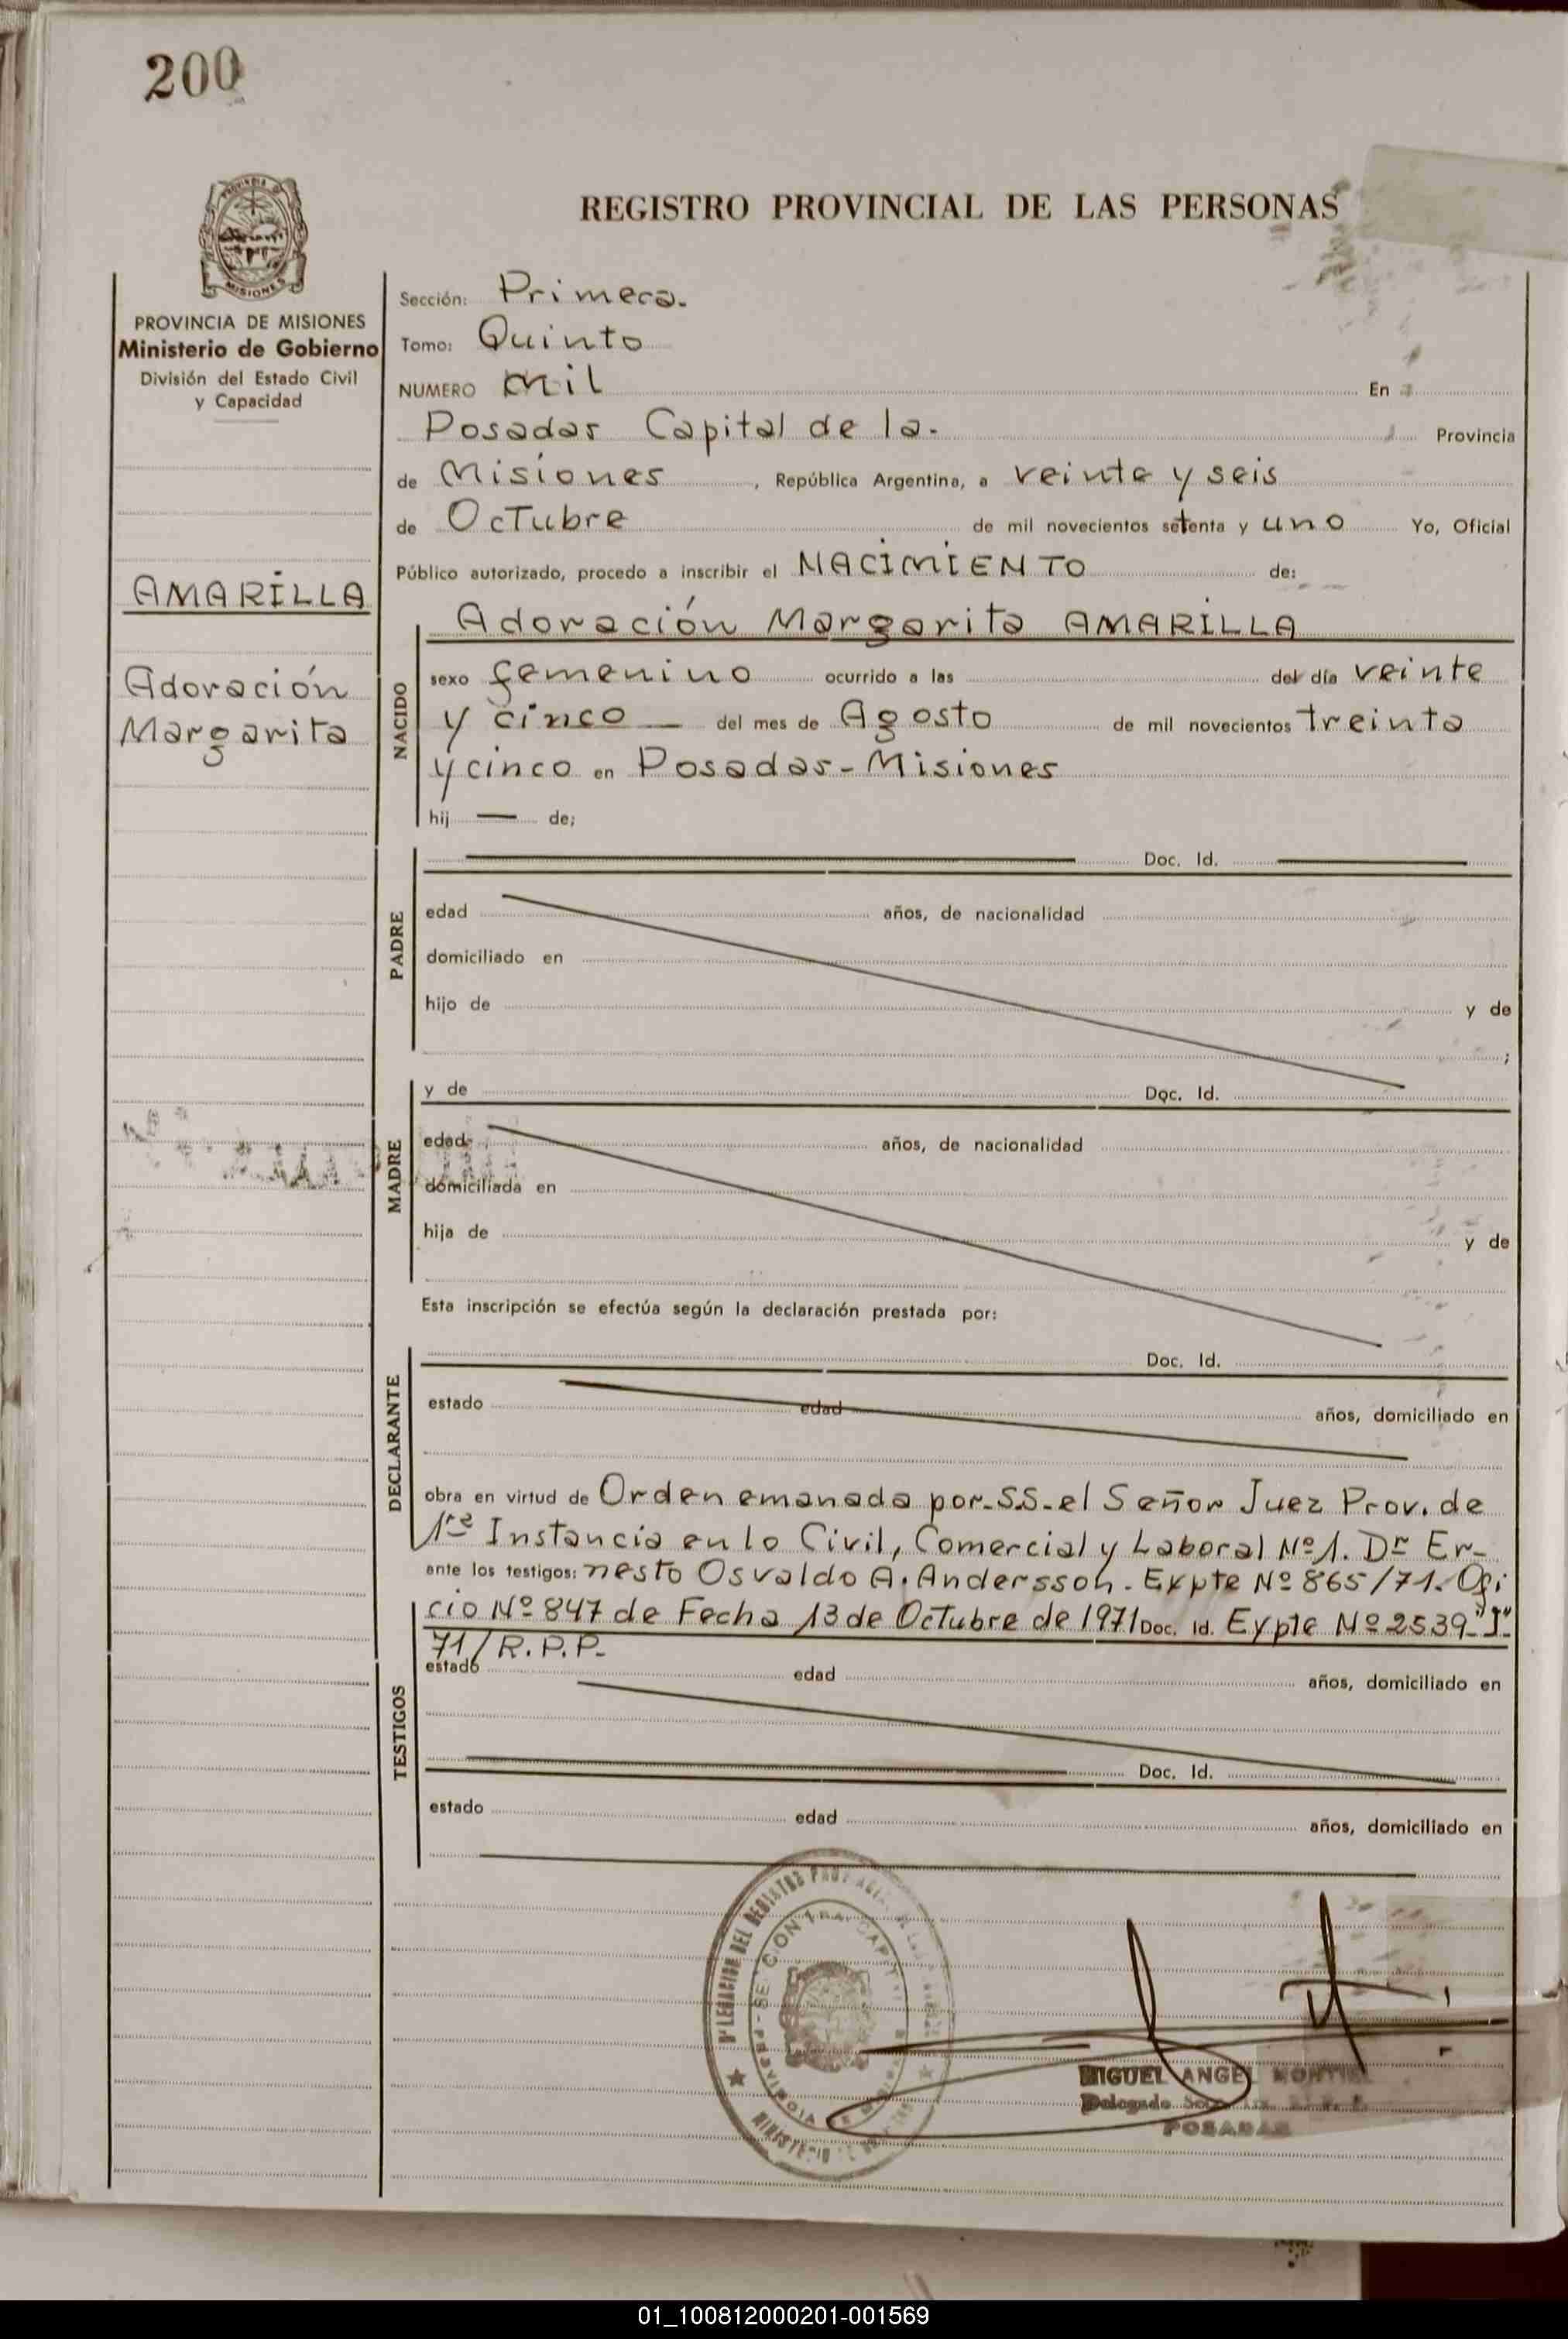 200
PROVINCIA DE MISIONES
Ministerio de Gobierno
División del Estado Civil
y Capacidad
AMARILLA
Adoración
Margarita
REGISTRO PROVINCIAL DE LAS PERSONAS
Sección: Primera.
Tomo: Quinto
NUMERO mil En
Posadas Capital de la. Provincia
de Misiones, República Argentina, a veinte y seis
de Octubre de mil novecientos setenta y uno Yo, Oficial
Público autorizado, procedo a inscribir el NACIMIENTO de:
Adoración Margarita AMARILLA
NACIDO
sexo femenino ocurrido a las del día veinte
y cinco — del mes de Agosto de mil novecientos treinta
y cinco en Posadas - Misiones
hij — de;
PADRE
Doc. Id.
edad años, de nacionalidad
domiciliado en
hijo de y de
;
MADRE
y de Doc. Id.
edad años, de nacionalidad
domiciliada en
hija de y de
Esta inscripción se efectúa según la declaración prestada por:
DECLARANTE
Doc. Id.
estado edad años, domiciliado en
obra en virtud de Orden emanada por S.S. el Señor Juez Prov. de
1ra Instancia en lo Civil, Comercial y Laboral Nº 1. Dr Er-
ante los testigos: nesto Osvaldo A. Andersson. Expte Nº 865/71. Ofi
cio Nº 847 de Fecha 13 de Octubre de 1971 Doc. Id. Expte Nº 2539-"I"-
71/R.P.P.-
TESTIGOS
estado edad años, domiciliado en
Doc. Id.
estado edad años, domiciliado en
MIGUEL ANGEL
Delegado
POSADAS
01_100812000201-001569